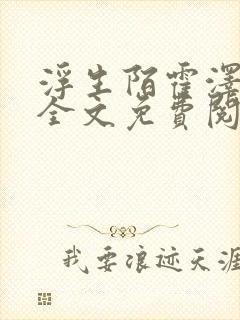 浮生陌霍澤
全文免費閱
我要浪迹天涯